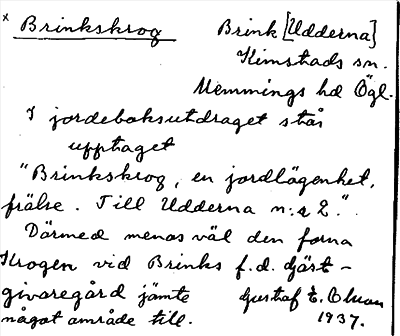 x Brinkskrog Brink [Udderna]
Kimstads sn.
Memmings hd Ögl.
I jordeboksutdraget står
upptaget
"Brinkskrog, en jordlägenhet,
frälse. Till Udderna n:r 2."
Därmed menas väl den forna
Krogen vid Brinks f.d. gjäst-
givaregård jämte Gustaf E. Olsson
något område till. 1937.